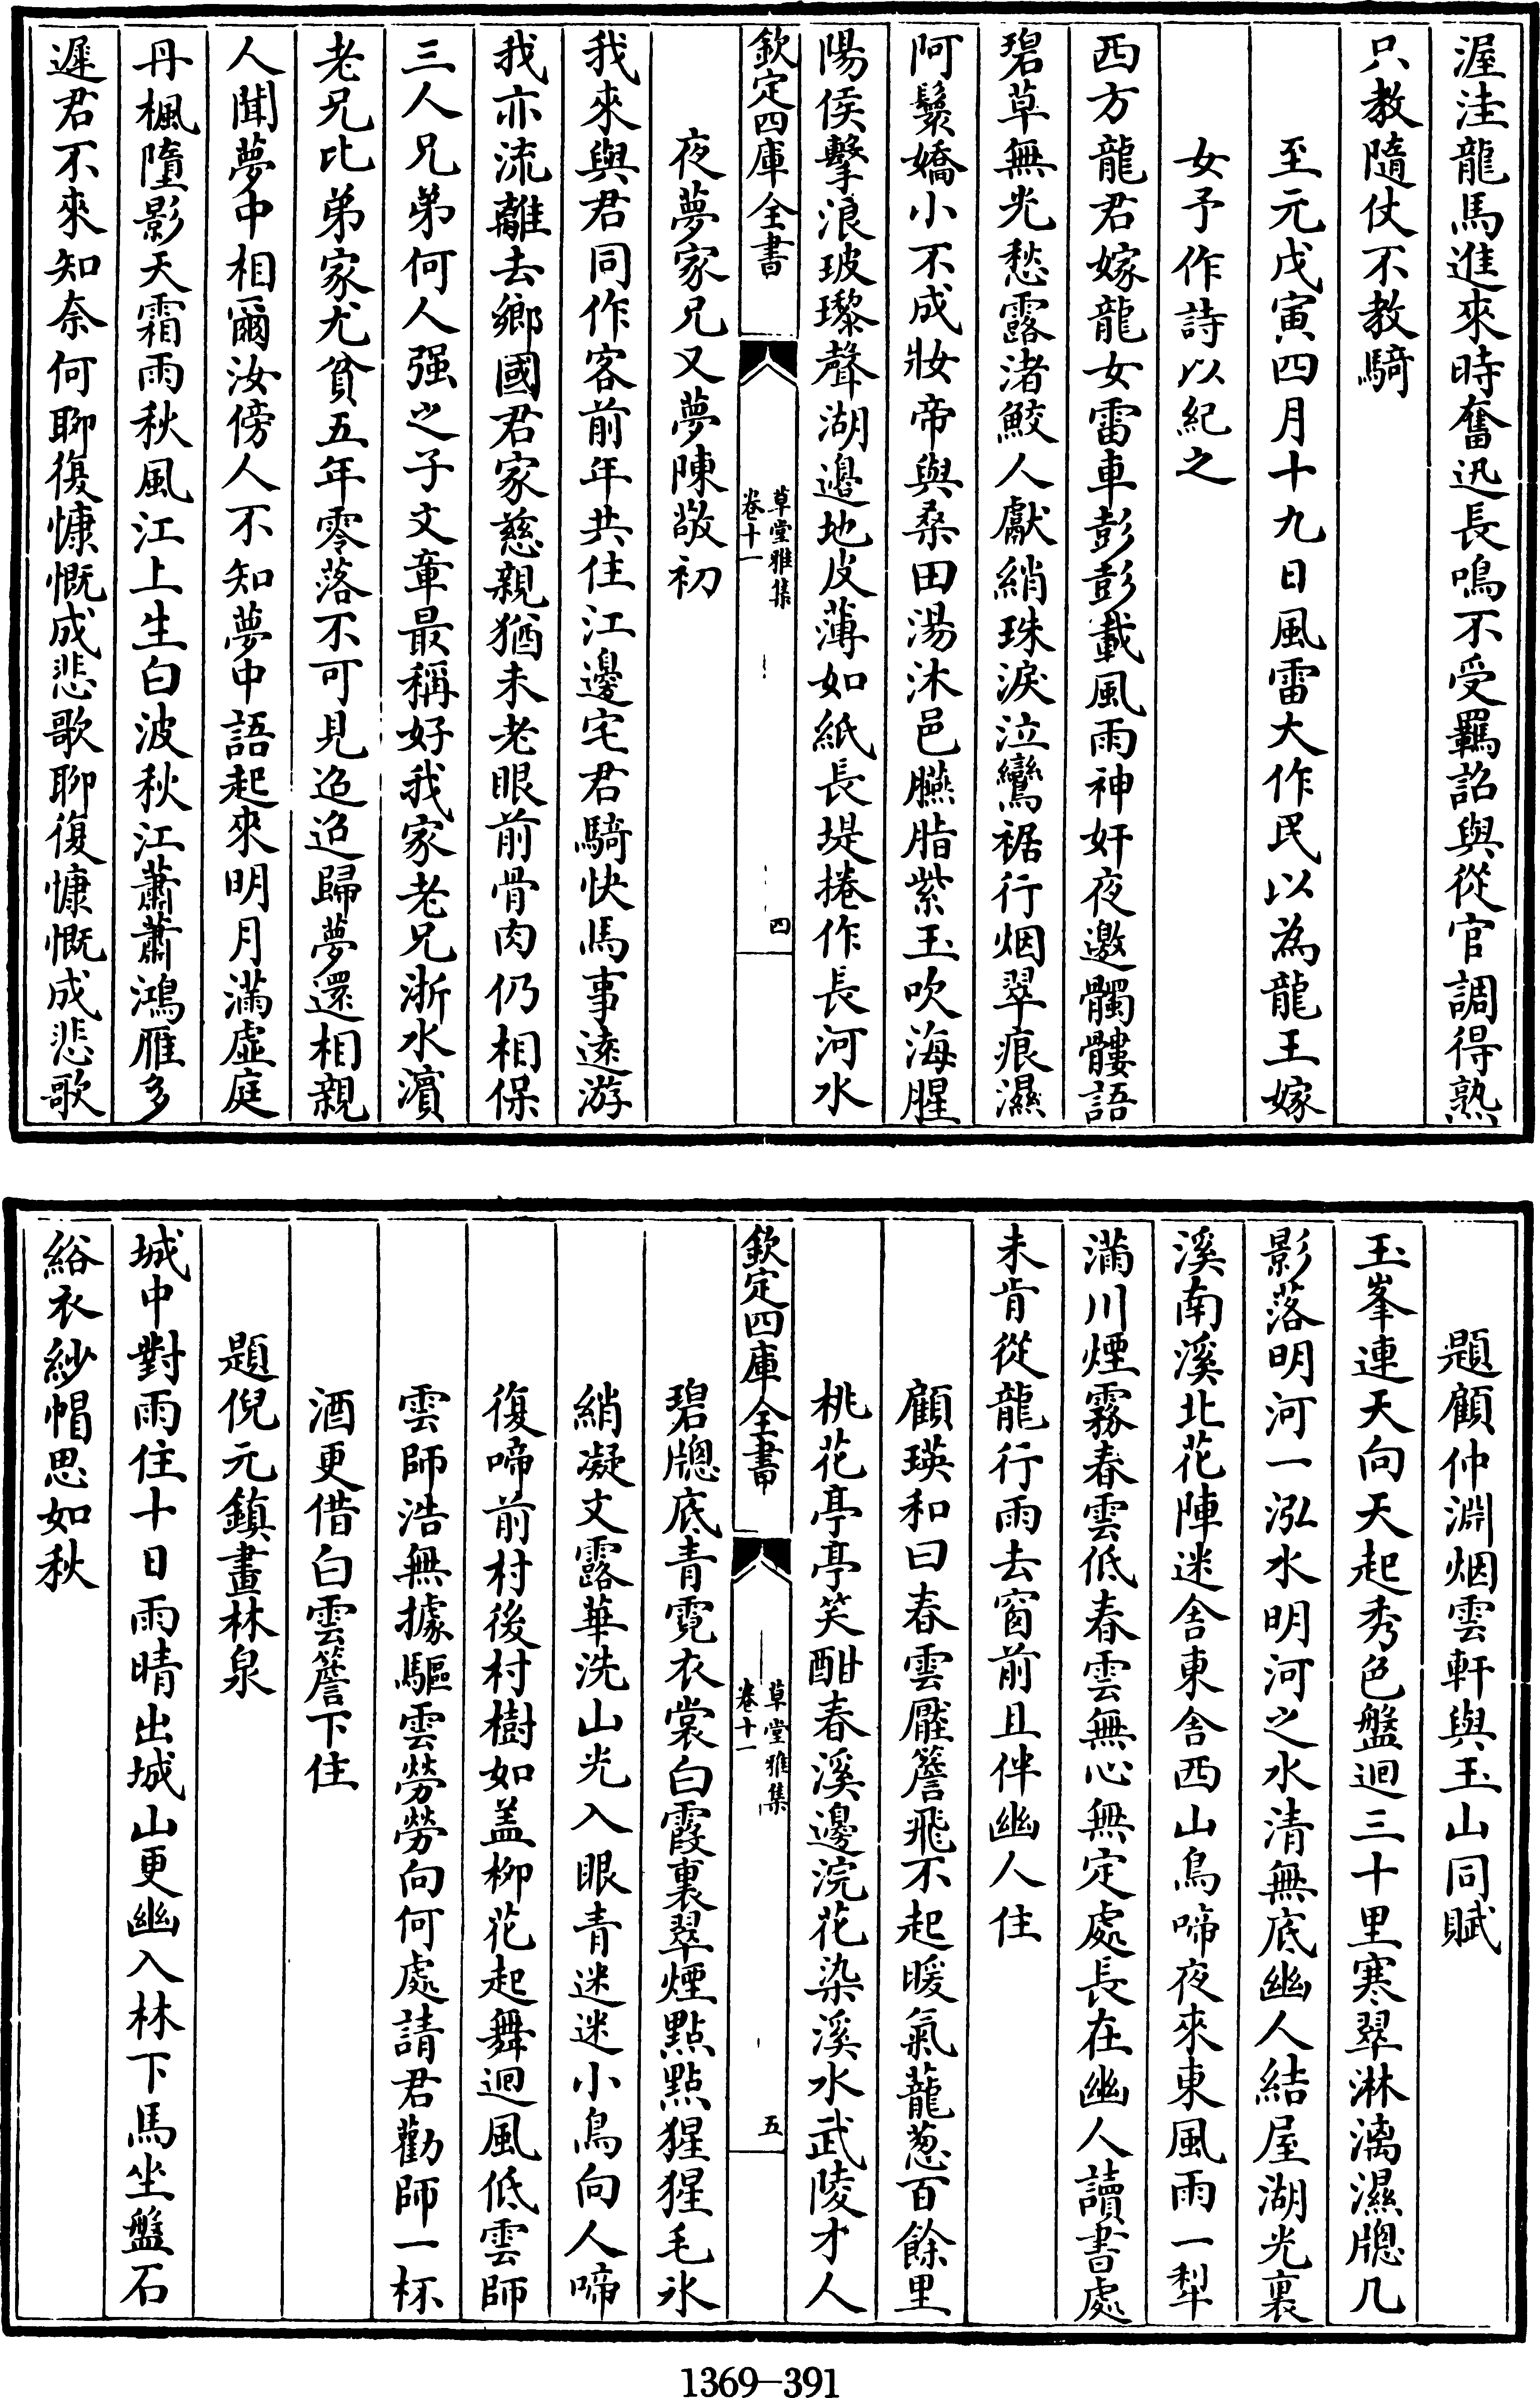 渥洼龍馬進來時奮迅長鳴不受羈詔與從官調得熟
只教隨仗不教騎
至元戊寅四月十九日風雷大作民以為龍王嫁
女予作詩以紀之
西方龍君嫁龍女雷車彭彭載風雨神奸夜邀髑髏語
碧草無光愁露渚鮫人獻綃珠淚泣鸞裾行烟翠痕濕
阿鬟嬌小不成妝帝與桑田湯沐邑臙脂紫玉吹海腥
陽侯擊浪玻瓈聲湖邉地皮薄如紙長堤捲作長河水
欽定四庫全書
草堂雅集
卷十一
四
夜夢家兄又夢陳敬初
我來與君同作客前年共住江邊宅君騎快馬事逺游
我亦流離去鄉國君家慈親猶未老眼前骨肉仍相保
三人兄弟何人强之子文章最稱好我家老兄浙水濵
老兄比弟家尤貧五年零落不可見迢迢歸夢還相親
人聞夢中相爾汝傍人不知夢中語起來明月滿虛庭
丹楓墮影天霜雨秋風江上生白波秋江蕭蕭鴻雁多
遲君不來知奈何聊復慷慨成悲歌聊復慷慨成悲歌
題顧仲淵烟雲軒與玉山同賦
玉峯連天向天起秀色盤迴三十里寒翠淋漓濕牕几
影落明河一泓水明河之水清無底幽人結屋湖光裏
溪南溪北花陣迷舍東舍西山鳥啼夜來東風雨一犁
滿川煙霧春雲低春雲無心無定處長在幽人讀書處
未肯從龍行雨去窗前且伴幽人住
顧瑛和曰春雲壓簷飛不起暖氣蘢葱百餘里
桃花亭亭笑酣春溪邊浣花染溪水武陵才人
欽定四庫全書
草堂雅集
卷十一
五
碧牕底青霓衣裳白霞裏翠煙點點猩猩毛氷
綃凝文露華洗山光入眼青迷迷小鳥向人啼
復啼前村後村樹如盖柳花起舞迴風低雲師
雲師浩無據驅雲勞勞向何處請君勸師一杯
酒更借白雲簷下住
題倪元鎮畫林泉
城中對雨住十日雨晴出城山更幽入林下馬坐盤石
綌衣紗帽思如秋
1369-391